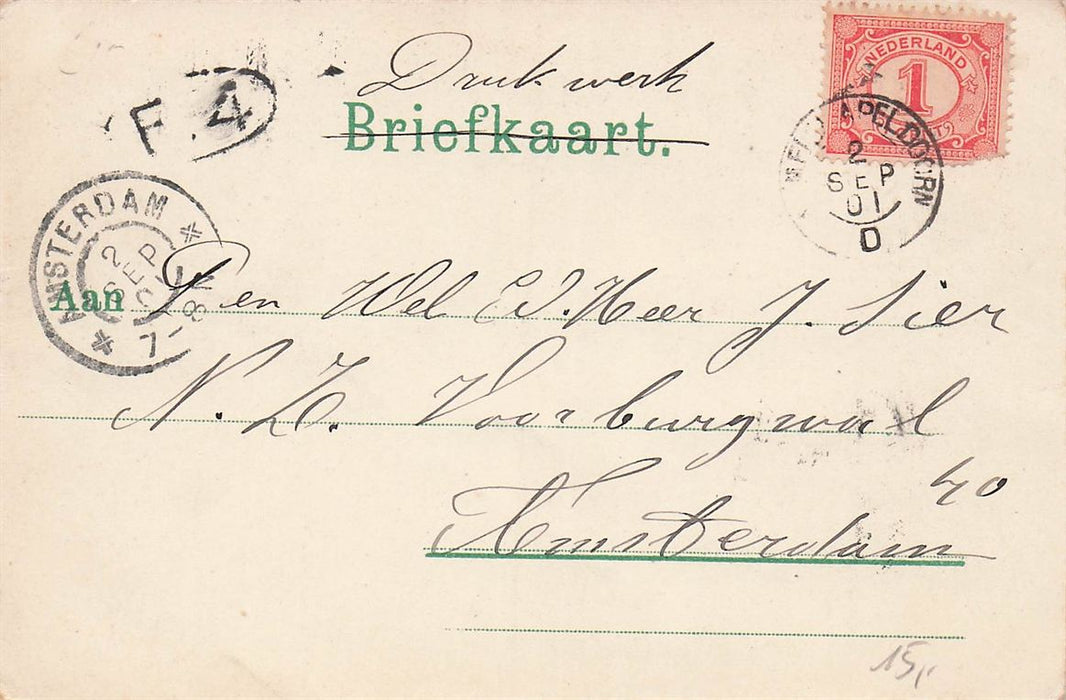 Drukwerk
Briefkaart.
NEDERLAND
1
F. 4
APELDOORN
2
SEP
01
D
AMSTERDAM
2
SEP
01
7-8
Aan Den Wel Ed. Heer J. Sier
N. Z. Voorburgwal
40
Amsterdam
15,